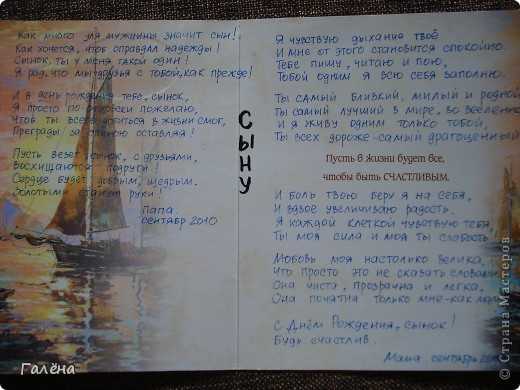 Как много для мужчины значит сын!
Как хочется, чтоб оправдал надежды!
Сынок, ты у меня такой один!
Я рад, что мы друзья с тобой, как прежде!
И в день рождения тебе, сынок,
Я просто по-отцовски пожелаю,
Чтоб ты всего добиться в жизни смог,
Преграды за спиною оставляя!
Пусть везет, сынок, с друзьями,
Восхищаются подруги!
Сердце будет добрым, щедрым.
Золотыми станут руки!
Папа.
сентябрь 2010
СЫНУ
Я чувствую дыхание твоё
И мне от этого становится спокойно.
Тебе пишу, читаю и пою,
Тобой одним я всю себя заполню.
Ты самый близкий, милый и родной,
Ты самый лучший в мире, во вселенной
И я живу одним только тобой,
Ты всех дороже-самый драгоценный
Пусть в жизни будет все,
чтобы быть СЧАСТЛИВЫМ.
И боль твою беру я на себя,
И вдвое увеличиваю радость.
Я каждой клеткой чувствую тебя,
Ты моя сила и моя ты слабость.
Любовь моя настолько велика,
Что просто это не сказать словами
Она чиста, прозрачна и легка,
Она понятна только мне-как маме
С Днём Рождения, сынок!
Будь счастлив.
Мама. сентябрь
Галёна
© Страна Мастеров